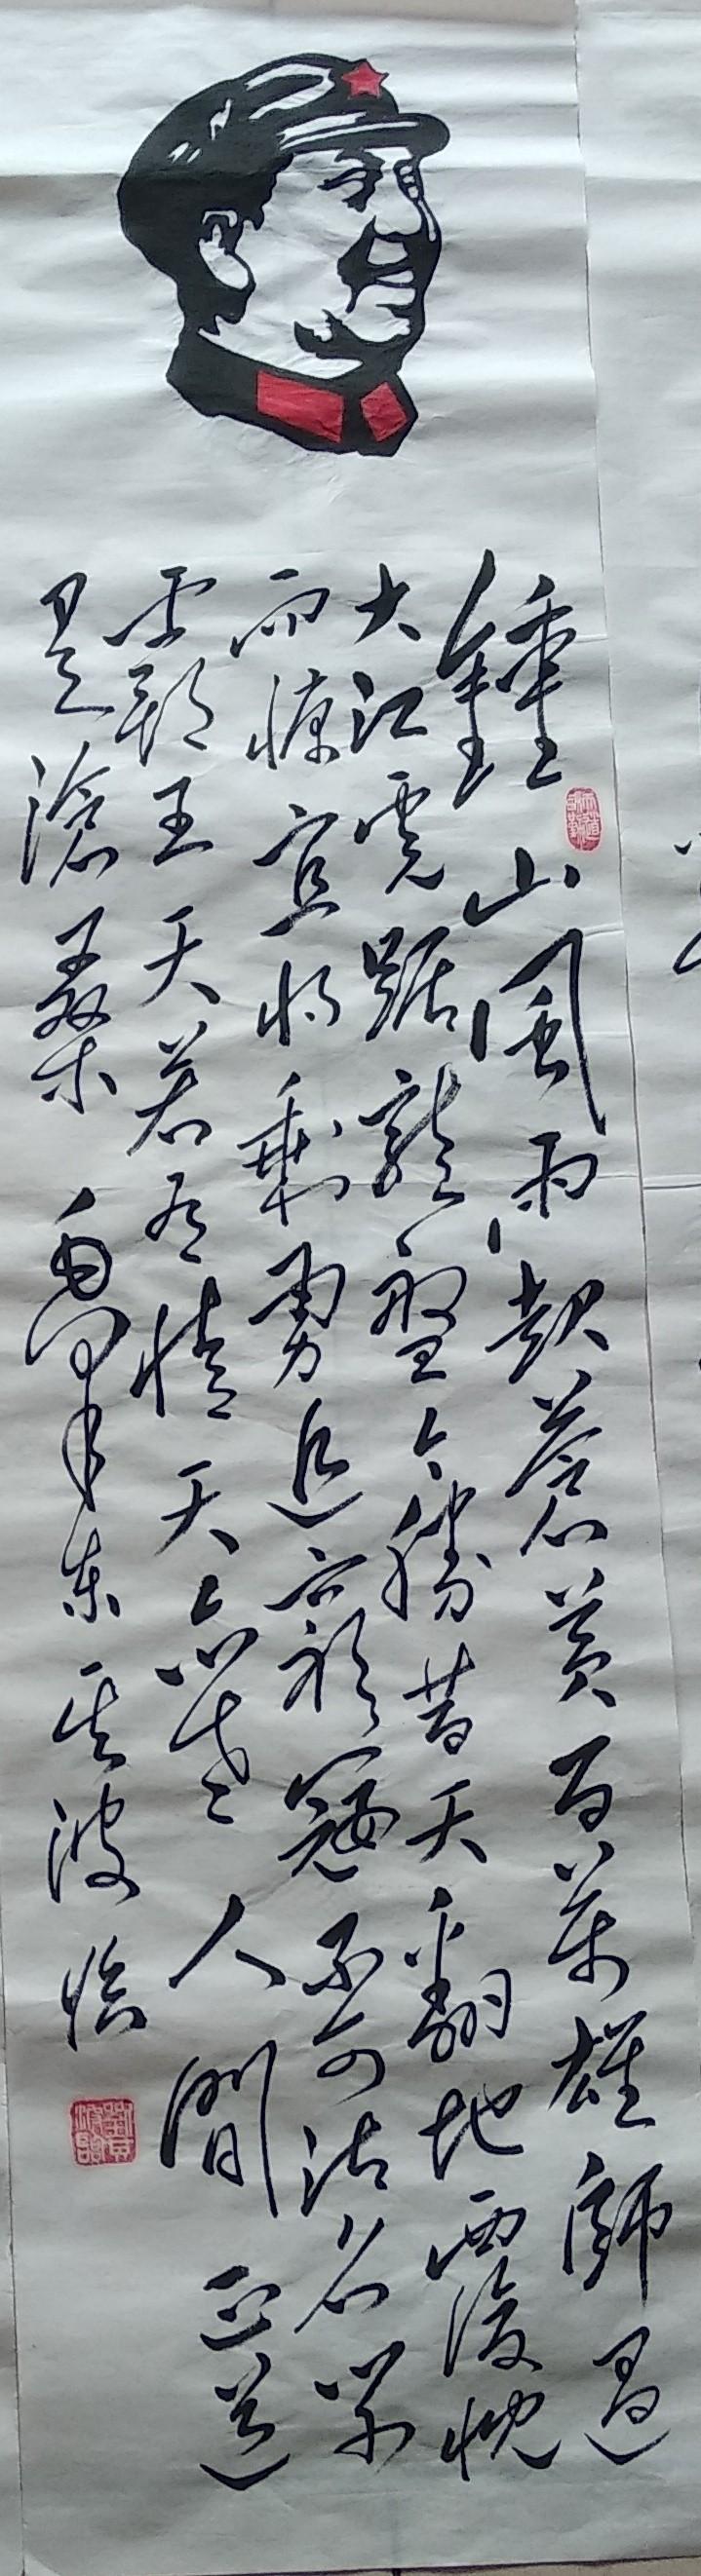 鍾山風雨起蒼黃百萬雄師過
大江虎踞龍盤今勝昔天翻地覆慨
而慷宜将剩勇追窮寇不可沽名学
霸王天若有情天亦老人間正道
是滄桑 毛澤东 波临
天道酬勤